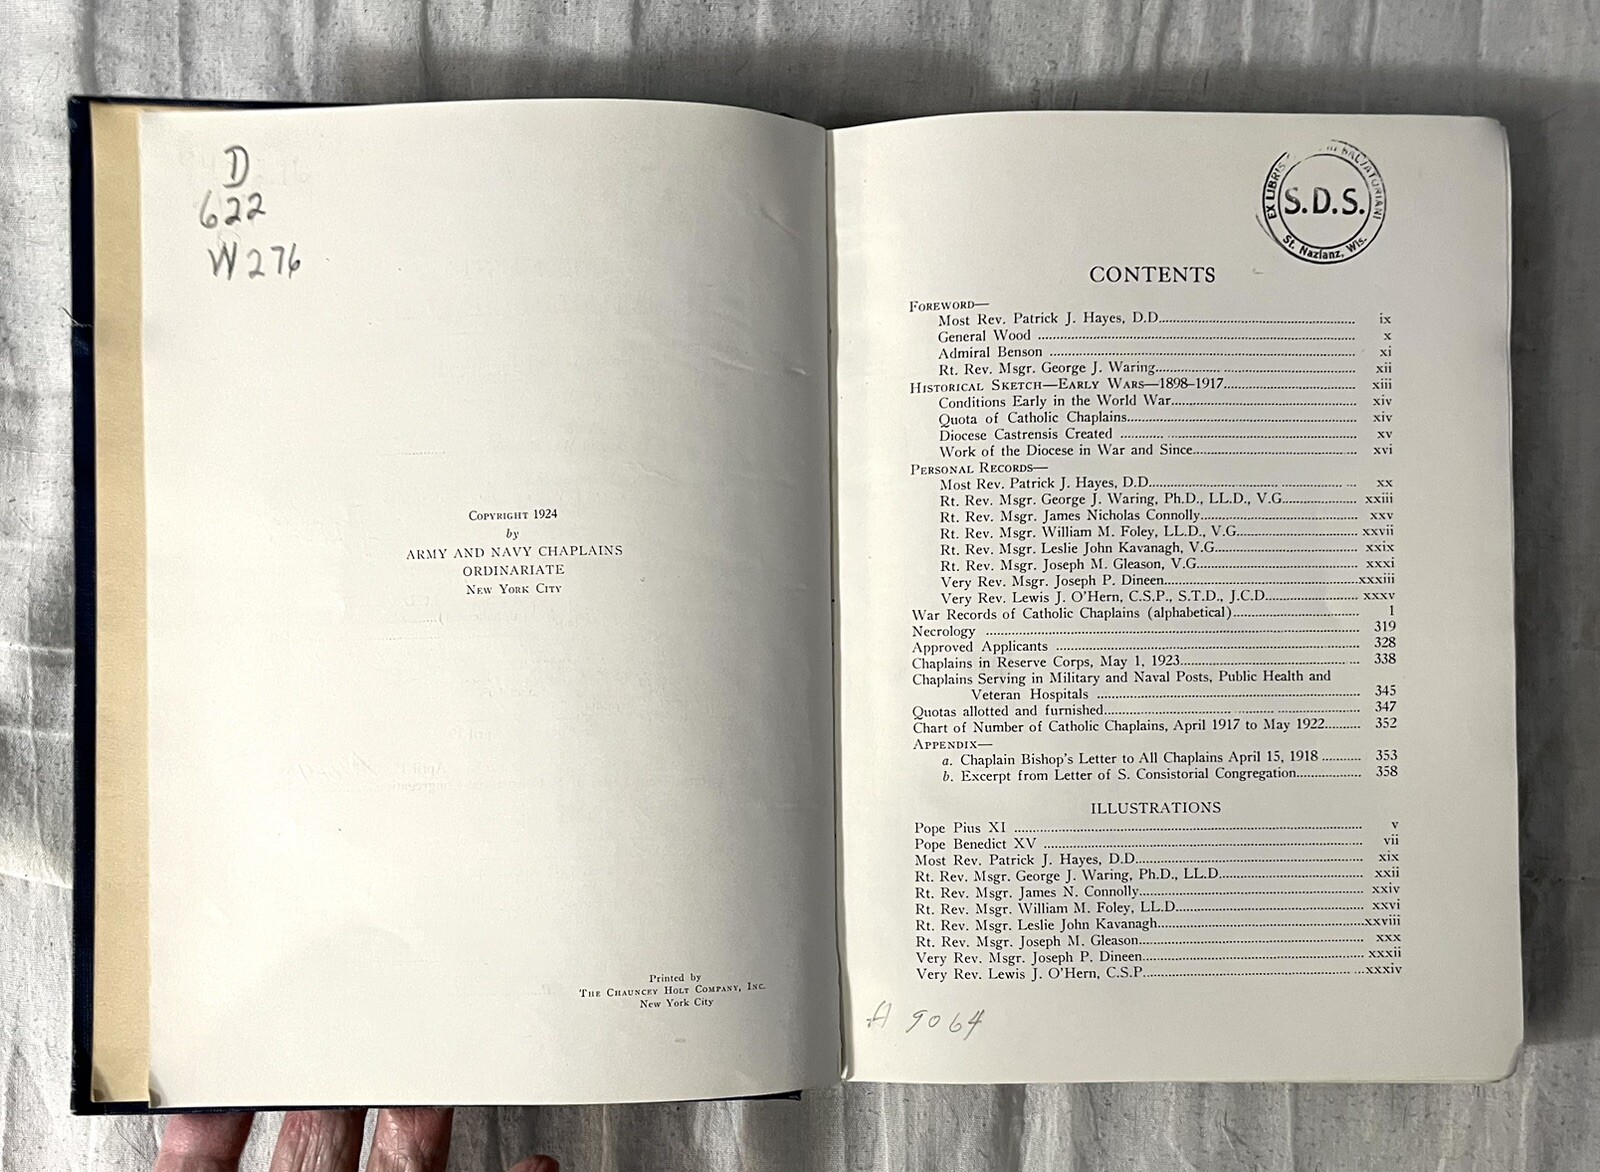 D
622
W276
COPYRIGHT 1924
by
ARMY AND NAVY CHAPLAINS
ORDINARIATE
NEW YORK CITY
Printed by
THE CHAUNCEY HOLT COMPANY, INC.
New York City
EX LIBRIS SALVATORIANI
S.D.S.
St. Nazianz, Wis.
CONTENTS
FOREWORD—
Most Rev. Patrick J. Hayes, D.D. ix
General Wood x
Admiral Benson xi
Rt. Rev. Msgr. George J. Waring xii
HISTORICAL SKETCH—EARLY WARS—1898–1917 xiii
Conditions Early in the World War xiv
Quota of Catholic Chaplains xiv
Diocese Castrensis Created xv
Work of the Diocese in War and Since xvi
PERSONAL RECORDS—
Most Rev. Patrick J. Hayes, D.D. xx
Rt. Rev. Msgr. George J. Waring, Ph.D., LL.D., V.G. xxiii
Rt. Rev. Msgr. James Nicholas Connolly xxv
Rt. Rev. Msgr. William M. Foley, LL.D., V.G. xxvii
Rt. Rev. Msgr. Leslie John Kavanagh, V.G. xxix
Rt. Rev. Msgr. Joseph M. Gleason, V.G. xxxi
Very Rev. Msgr. Joseph P. Dineen xxxiii
Very Rev. Lewis J. O'Hern, C.S.P., S.T.D., J.C.D. xxxv
War Records of Catholic Chaplains (alphabetical) 1
Necrology 319
Approved Applicants 328
Chaplains in Reserve Corps, May 1, 1923 338
Chaplains Serving in Military and Naval Posts, Public Health and
Veteran Hospitals 345
Quotas allotted and furnished 347
Chart of Number of Catholic Chaplains, April 1917 to May 1922 352
APPENDIX—
a. Chaplain Bishop's Letter to All Chaplains April 15, 1918 353
b. Excerpt from Letter of S. Consistorial Congregation 358
ILLUSTRATIONS
Pope Pius XI v
Pope Benedict XV vii
Most Rev. Patrick J. Hayes, D.D. xix
Rt. Rev. Msgr. George J. Waring, Ph.D., LL.D. xxii
Rt. Rev. Msgr. James N. Connolly xxiv
Rt. Rev. Msgr. William M. Foley, LL.D. xxvi
Rt. Rev. Msgr. Leslie John Kavanagh xxviii
Rt. Rev. Msgr. Joseph M. Gleason xxx
Very Rev. Msgr. Joseph P. Dineen xxxii
Very Rev. Lewis J. O'Hern, C.S.P. xxxiv
A 9064